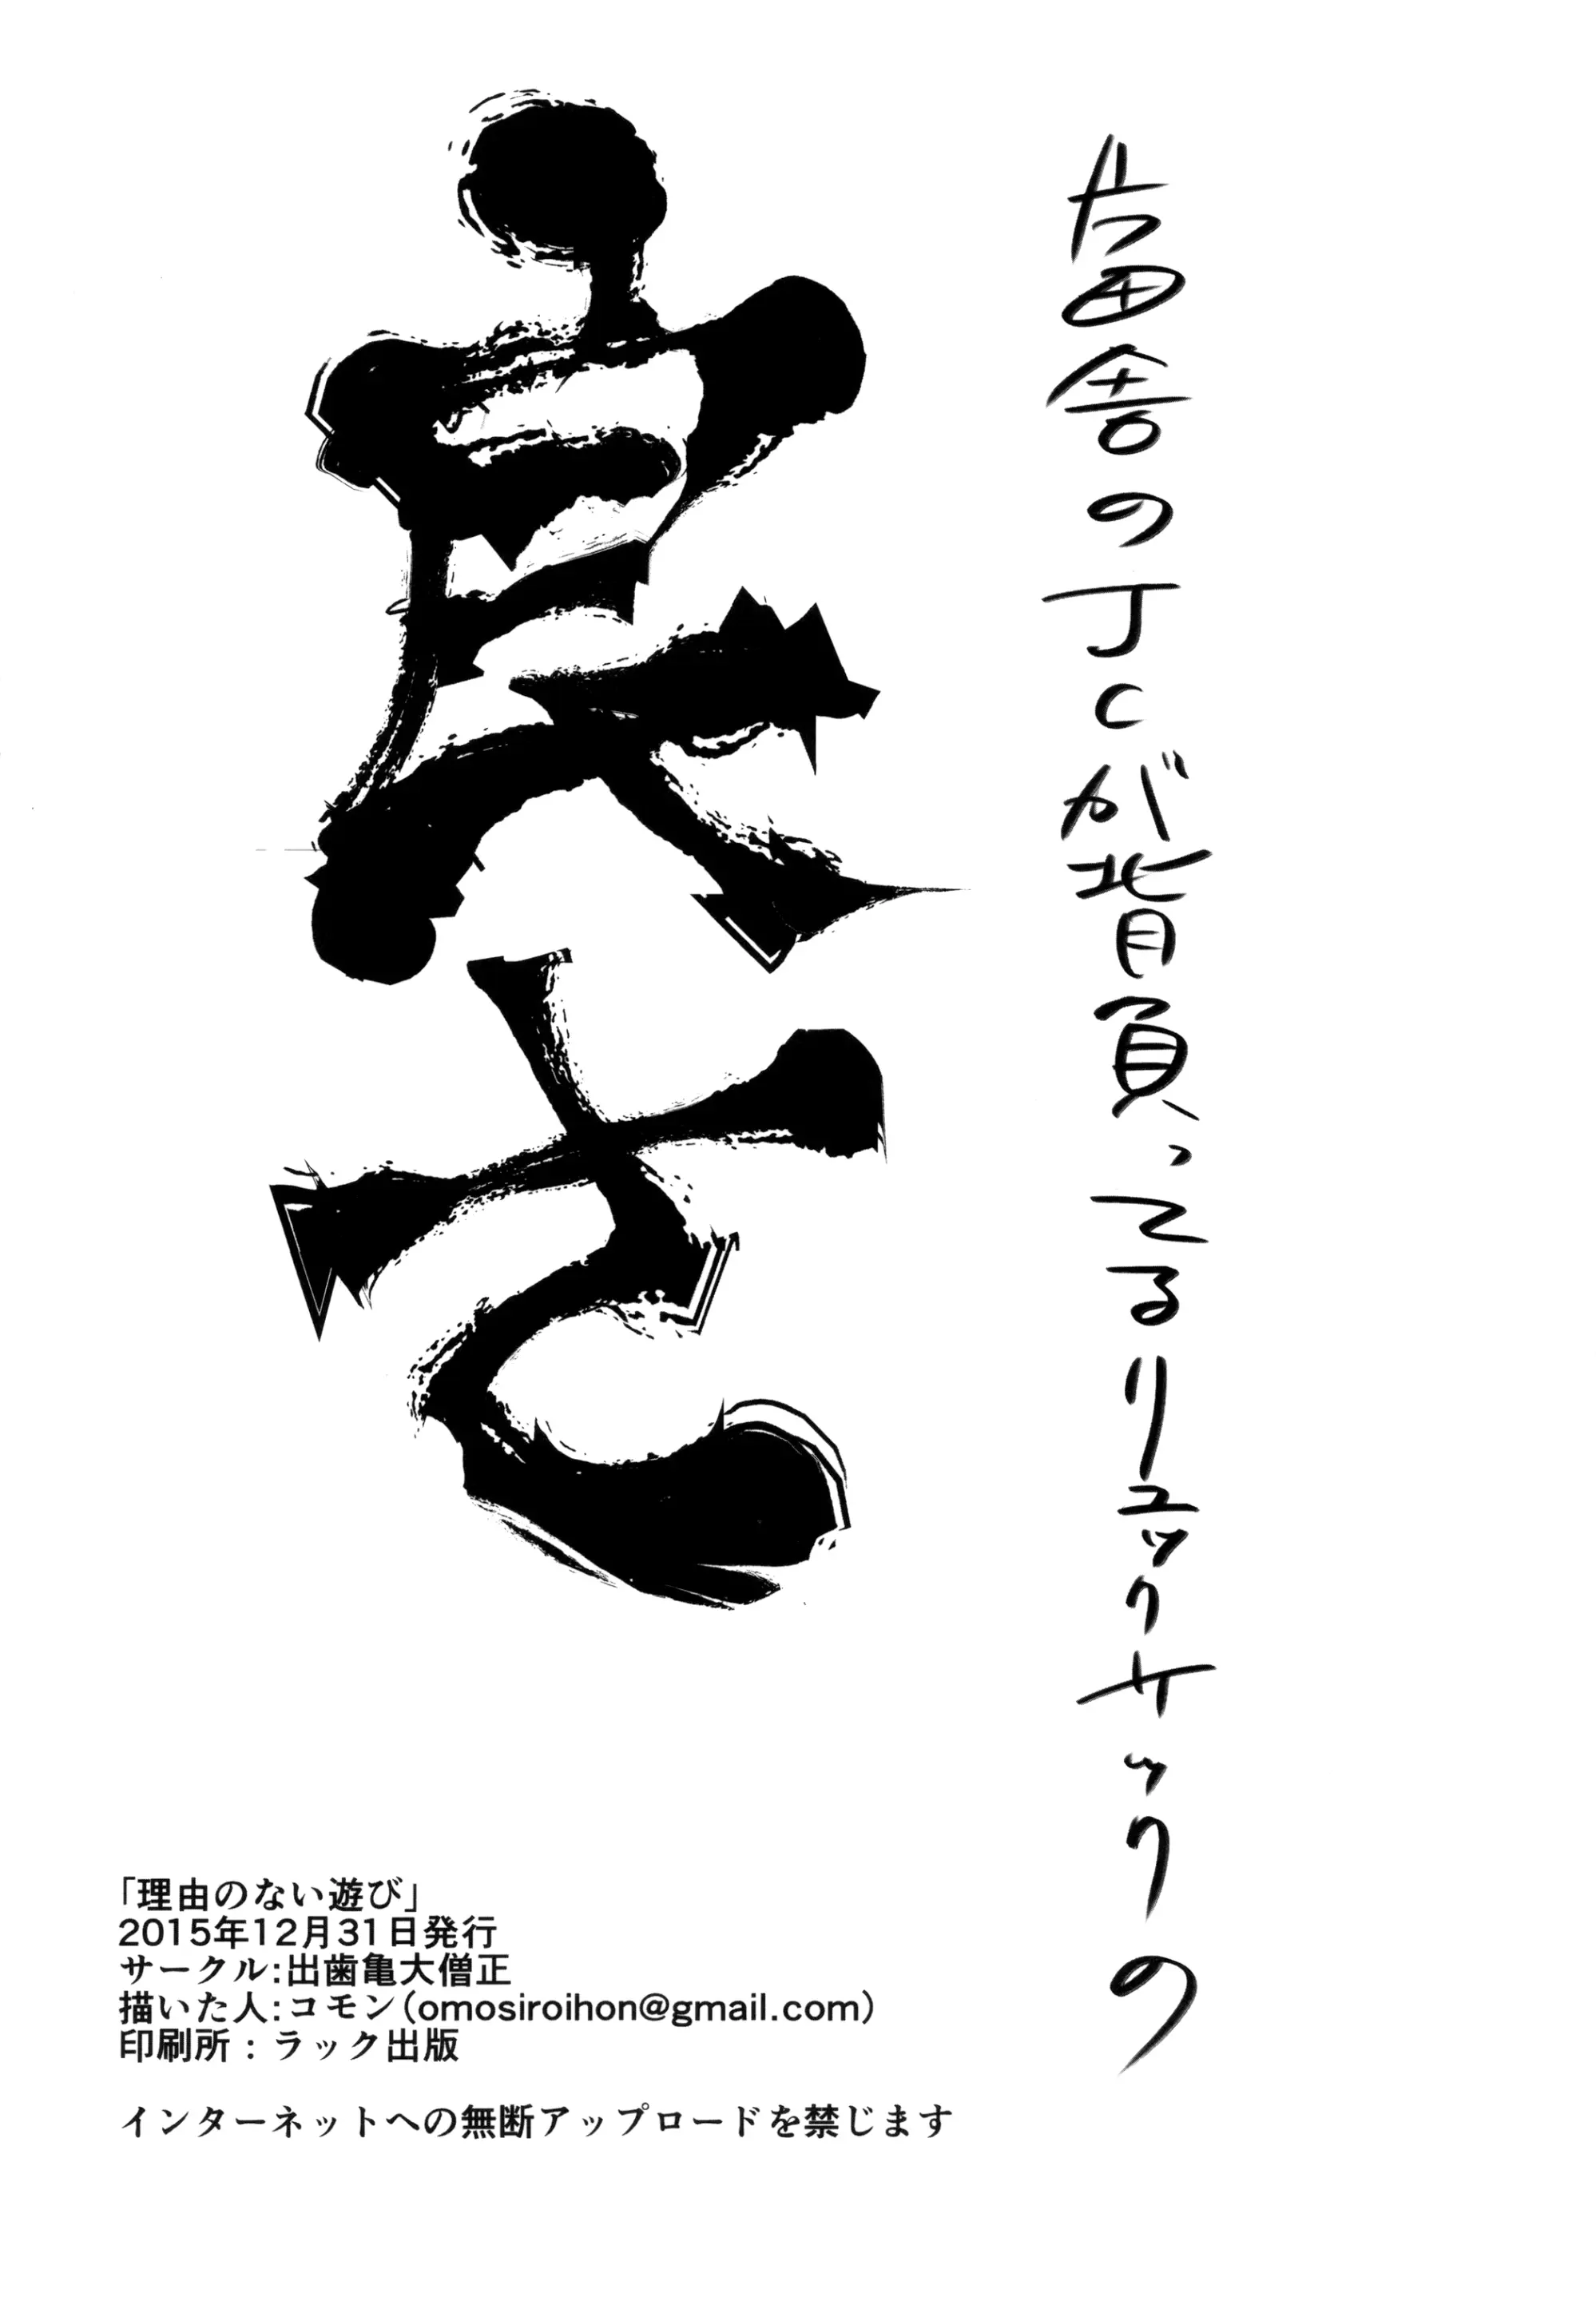 田舎のJCが背負ってるリュックサックの
良さ
「理由のない遊び」
2015年12月31日発行
サークル:出歯亀大僧正
描いた人:コモン(omosiroihon@gmail.com)
印刷所：ラック出版
インターネットへの無断アップロードを禁じます